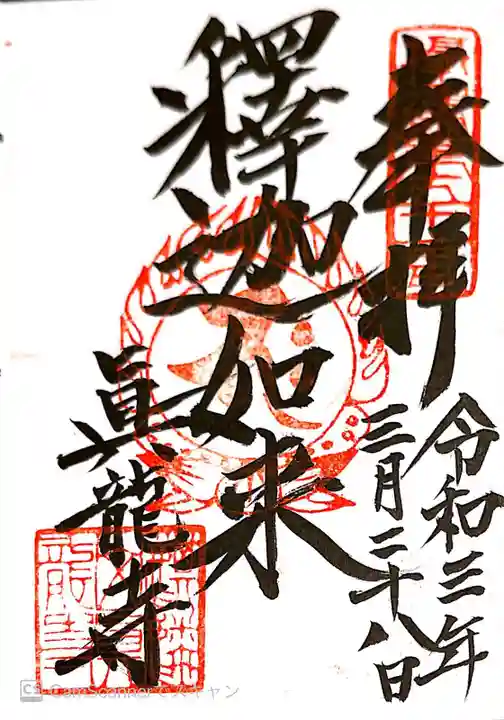 奉拝
令和三年
三月二十八日
釋迦如来
眞龍寺
CS CamScannerでスキャン